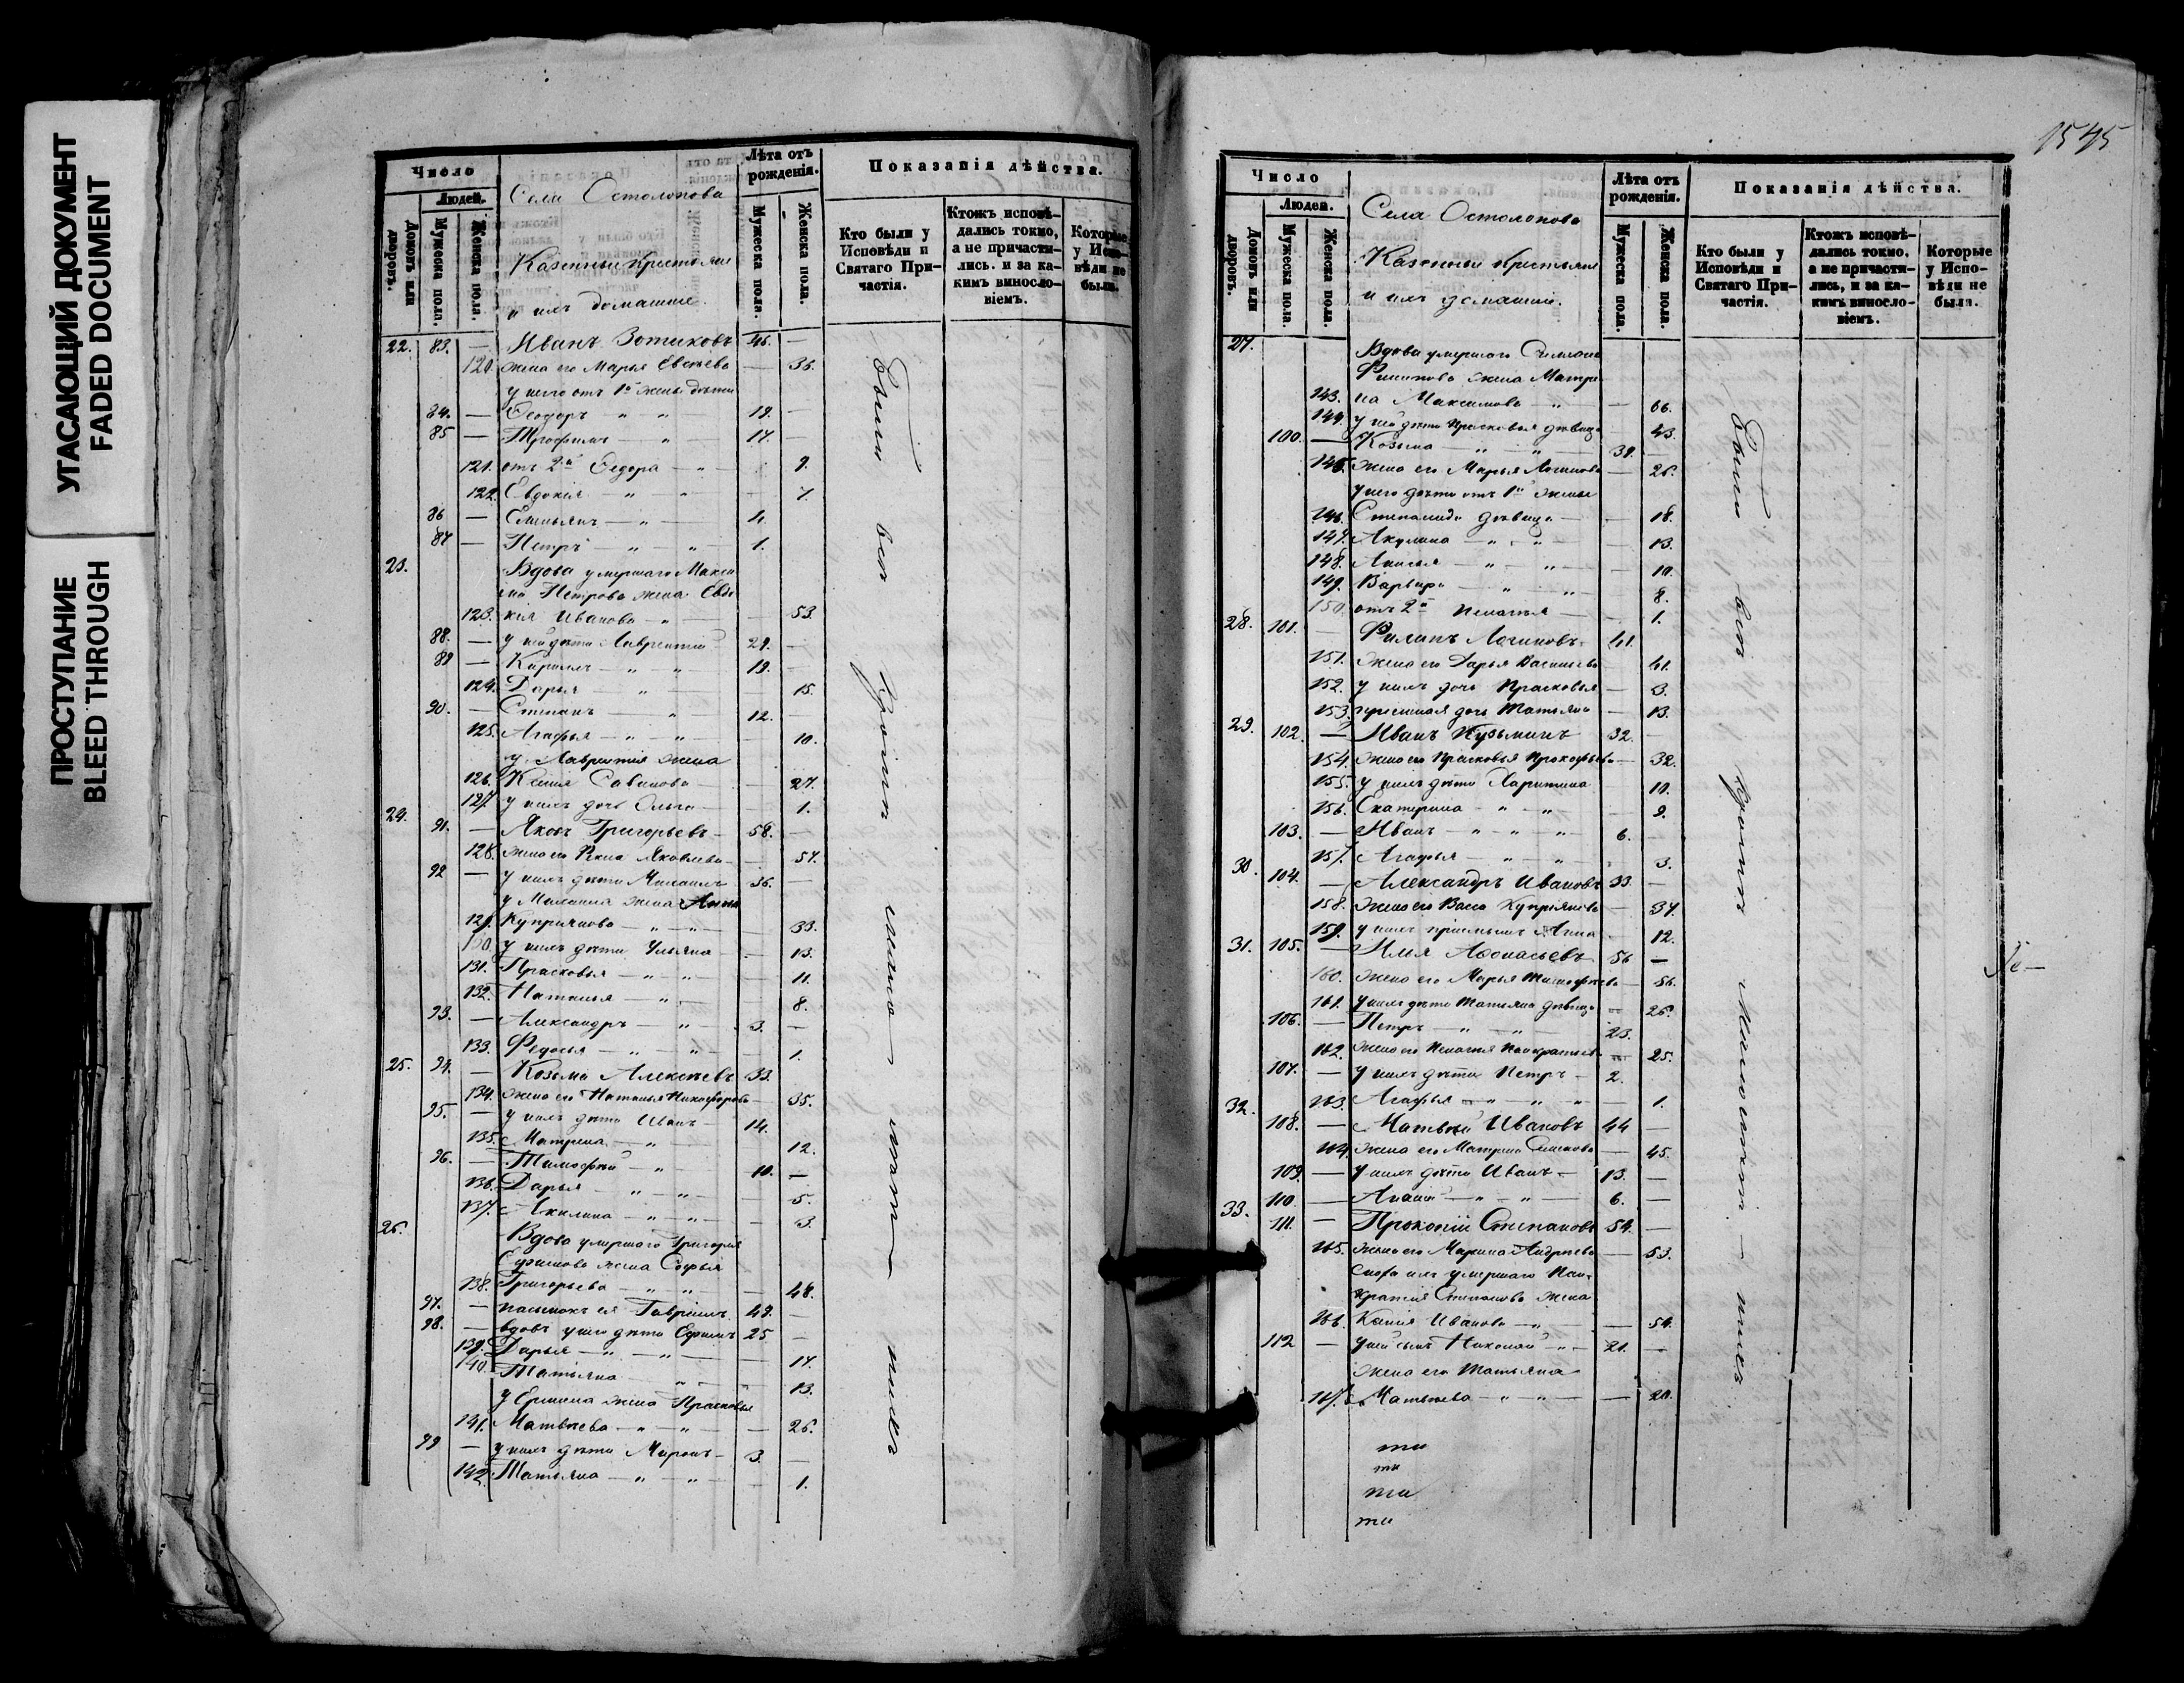 УГАСАЮЩИЙ ДОКУМЕНТ
FADED DOCUMENT
ПРОСТУПАНИЕ
BLEED THROUGH
Число
Людей.
Домовъ или дворовъ.
Мужеска пола.
Женска пола.
Села Остолопова
Казенные крестьяне
и ихъ домашніе.
Лѣта отъ рожденія.
Мужеска пола.
Женска пола.
Показанія дѣйства.
Кто были у Исповѣди и Святаго Причастія.
Ктожъ исповѣдались токмо, а не причастились. и за какимъ винословіемъ.
Которые у Исповѣди не были.
22. 83. — Иванъ Зотиковъ 46. —
120. жена его Марья — 36.
у него отъ 1й жены дѣти
84. — Ѳеодоръ 19. —
85 — Трофимъ 17. —
121. отъ 2й Ѳедора 9.
122. Евдокія — 7.
86 — Емильянъ — 4.
87 — Петръ — 1.
23. Вдова умершаго Макси
ма Петрова жена Евдо
123. кія Иванова — 53.
88. — у ней дѣти Лаврентій 29. —
89 — Кирилъ 19. —
124. Дарья — 15.
90. — Степанъ 12. —
125. Агафья — 10.
у Лаврентія жена
126. Ксенія Савинова — 27.
127. у нихъ дочь Ольга — 1.
24. 91. — Яковъ Григорьевъ 58. —
128. жена его Яковлева — 57.
92 — у нихъ дѣти Михаилъ 36. —
у Михаила жена Анна
129. Купріянова — 33.
130. у нихъ дѣти Ульяна — 13.
131. Прасковья — 11.
132. Наталья — 8.
93. — Александръ 3. —
133. Федосья — 1.
25. 94. — Козьма Алексѣевъ 33.
134. жена его Наталья Никифорова — 35.
95. — у нихъ дѣти Иванъ 14.
135. Матрена — 12.
96. — Тимофей 10. —
136. Дарья — 5.
137. Акилина — 3.
26. Вдова умершаго Григорья
Ефимова жена Софья
138. Григорьева — 48.
97. — пасынокъ ея Гавріилъ 49. —
98. — вдовъ у него дѣти Ефимъ 25 —
139. Дарья — 17.
140. Татьяна — 13.
у Ефима жена Прасковья
141. Матвѣева — 26.
99 — у нихъ дѣти Миронъ 3. —
142. Татьяна — 1.
Были вси
1545
Число
Людей.
Домовъ или дворовъ.
Мужеска пола.
Женска пола.
Села Остолопова
Казенные крестьяне
и ихъ домашніе.
Лѣта отъ рожденія.
Мужеска пола.
Женска пола.
Показанія дѣйства.
Кто были у Исповѣди и Святаго Причастія.
Ктожъ исповѣдались токмо, а не причастились, и за какимъ винословіемъ.
Которые у Исповѣди не были.
27. Вдова умершаго Симеона
Филипова жена Матре
143. на Максимова — 66.
144. у ней дѣти Прасковья дѣвица — 43.
100. — Козьма 39. —
145. жена его Марья Логинова — 26.
у него дѣти отъ 1й жены
146. Степанида дѣвица — 18.
147. Акулина — 13.
148. Анисья — 10.
149. Варвара — 8.
150. отъ 2й Пелагья — 1.
28. 101. — Филипъ Логиновъ 41.
151. жена его Дарья Васильева — 41.
152. у нихъ дочь Прасковья — 3.
153. приемная дочь Татьяна — 13.
29. 102. — Иванъ Кузьминъ 32. —
154. жена его Прасковья Прокофьева — 32.
155. у нихъ дѣти Харитина — 10.
156. Екатерина — 9.
103. — Иванъ 6. —
157. Агафья — 3.
30. 104. — Александръ Ивановъ 33. —
158. жена его Васса Купріянова — 37.
159. у нихъ приемышъ Анна 12.
31. 105. — Илья Афонасьевъ 56 —
160. жена его Марья Тимофеева — 56.
161. у нихъ дѣти Татьяна дѣвица — 26.
106. — Петръ 23.
162. жена его Пелагья Панкратьева — 25.
107. — у нихъ дѣти Петръ 2.
163. Агафья — 1.
32. 108. — Матвѣй Ивановъ 44 —
164. жена его Матрена — 45.
109. — у нихъ дѣти Иванъ 13. —
110. — 6. —
33. 111. — Прокопій Степановъ 54. —
165. жена его Марина Андреева — 53.
Сноха ихъ умершаго Пан
кратія Степанова жена
166. Ксенія Иванова — 54.
112 — у ней сынъ Николай 21. —
жена его Татьяна
167. Матвѣева — 20.
Были вси